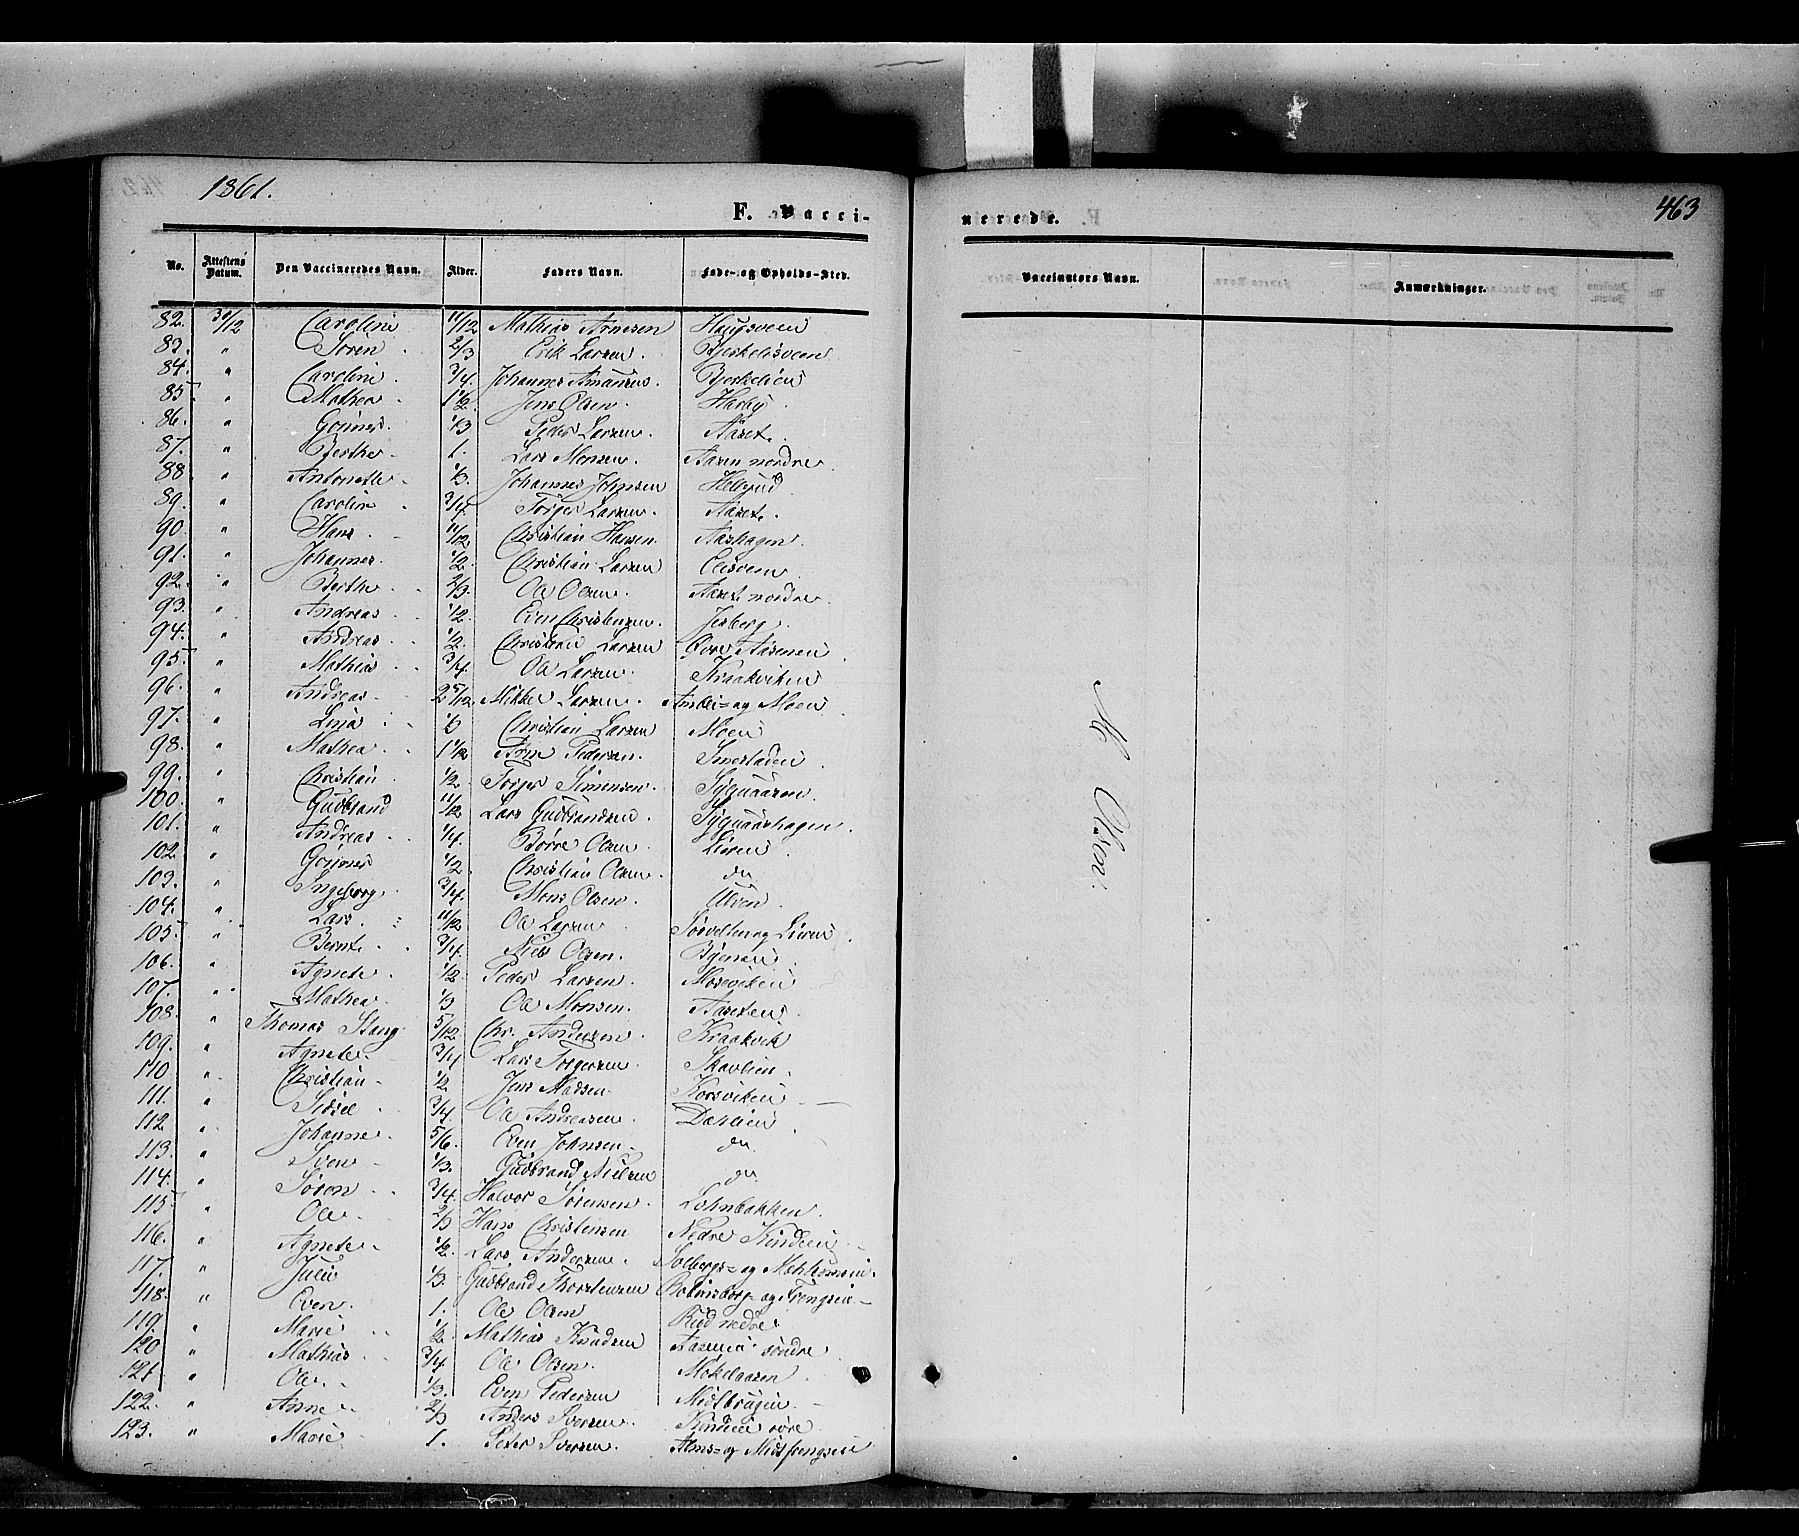 1861.
463
F. Vacci-
nerede.
No. Attestens Datum. Den Vaccineredes Navn. Alder. Faders Navn. Føde- og Opholds-Sted. Vaccinateurs Navn. Anmærkninger.
82. 30/12 Caroline 11/12 Mathias Arnesen Haugsveen
83. " Søren. 2/3 Erik Larsen. Bjerkeliesveen
84. " Caroline. 3/4. Johannes Amundsen. Bjerkelien
85. " Mathea 1 1/2. Jens Olsen. Harby
86. " Gunner. 1/3 Peder Larsen. Aaset.
87. " Berthe. 1. Lars Monsen. Aasen nordre
88 " Antonette. 1/3. Johannes Johnsen Hellerud
89. " Caroline. 3/4 Torger Larsen. Aaset.
90. " Hans. 11/12. Christian Hansen. Aashagen.
91. " Johannes. 1/2. Christian Larsen
92. " Berthe. 2/3. Ole Olsen. Aaset nordre
93. " Andreas. 1/2. Even Christensen. Jesberg.
94. " Andreas. 1/2. Christian Larsen Øvre Aasenen
95. " Mathias. 3/4. Ole Larsen. Kraakviken
96. " Andreas. 2 5/12 Mikkel Larsen. og Moen
97. " Lina. Christian Larsen Moen
98. " Mathea. Arne Pedersen. Smestaden
99. " Christian 1/2. Torger Simensen.
100. " Gudbrand 11/12 Lars Gudbrandsen.
101. " Andreas. 1/4. Børre Olsen Lieren
102. " Gunner 1/2 Christian Olsen. do
103. " Ingeborg. 3/4. Mons Olsen. Ulven.
104. " Lars. 11/12 Ole Larsen Sørvelten og Lieren
105. " Bernt. 3/4. Niels Olsen. Bjønen.
106. " Agnete. 1/2. Peder Larsen. Moseviken
107. " Mathea. 1/3 Ole Monsen. Aaseten
108. " Thomas Stang 5/12 Chr. Andersen Kraakvik
109. " Agnete. 3/4 Lars Torgersen. Skavlien.
110 " Christian. 1/2. Jens Madsen. Korsviken
111. " Sidsel. 3/4. Ole Andreasen Dahlien.
112 " Johanne. 5/6. Even Johnsen. do
113. " Sven. 1/3. Gudbrand Nielsen do
114. " Søren. 3/4. Halvor Sørensen. Lohnbakken.
115 " Ole. 2/3 Hans Christensen Nedre Kindlien
116. " Agnete. 1/2. Lars Andersen. Solbergs- og
117. " Julie 1/3. Gudbrand Thorstensen og
118. " Even. 1. Ole Olsen Rud nedre
119. " Marie 1/2 Mathias Knudsen Aasenei søndre
120 " Mathias. 3/4. Ole Olsen. Mokelaasen
121 " Ole. 1/3. Even Pedersen
122. " Anne 2/3 Anders Iversen. Kindlie
123. " Marie. 1. Peter Iversen.
M Olsen.